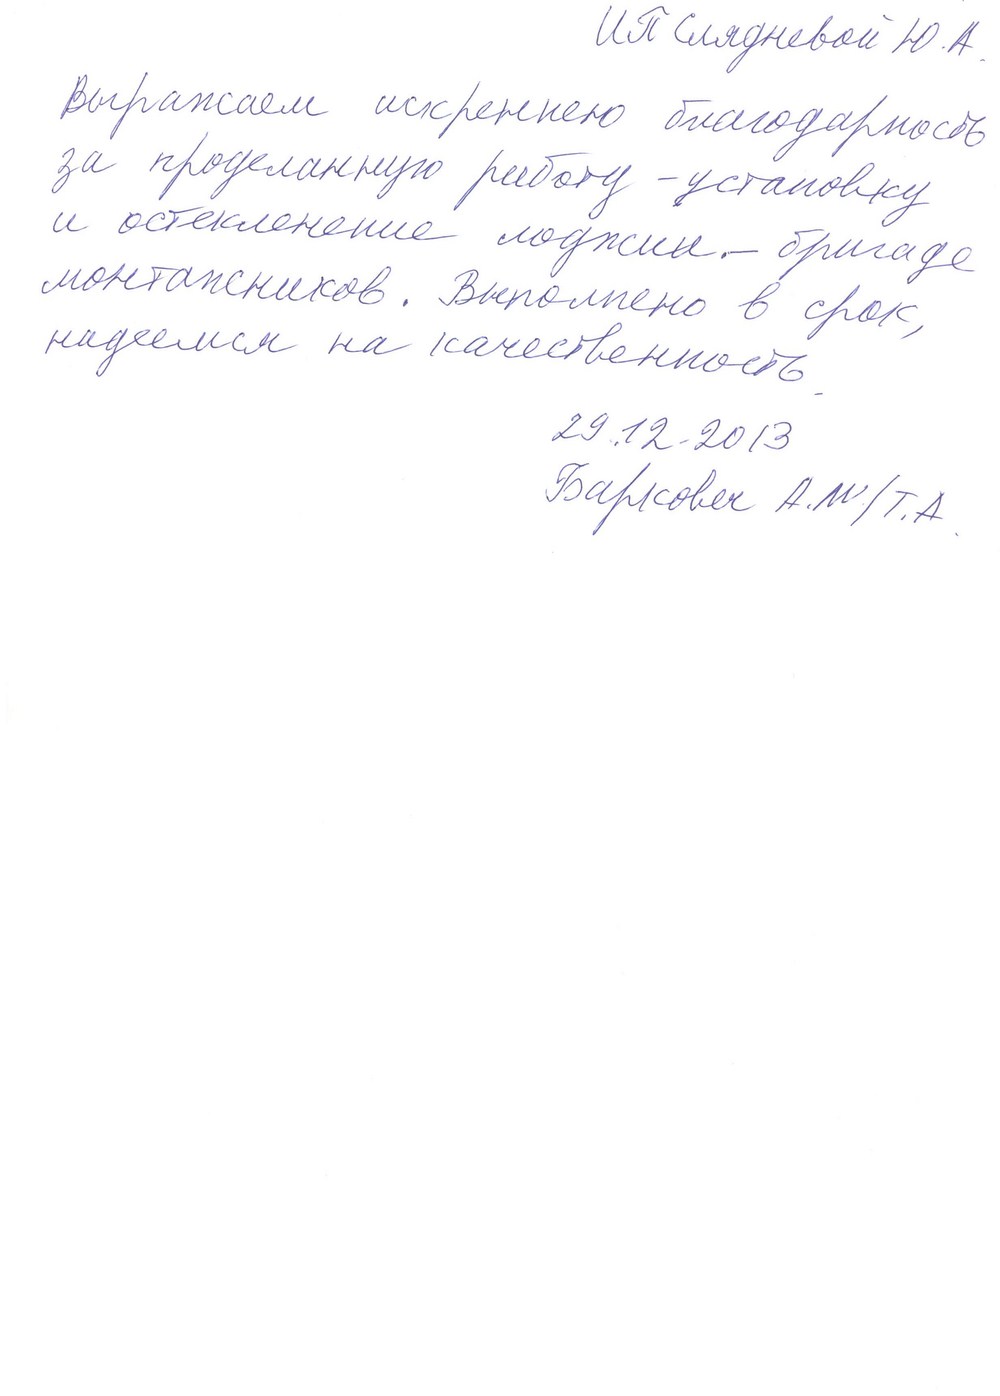 ИП Слядневой Ю.А.
Выражаем искреннею благодарность
за проделанную работу - установку
и остекленение лоджии. - бригаде
монтажников. Выполнено в срок,
надеемся на качественность.
29.12.2013
А.М/Т.А.